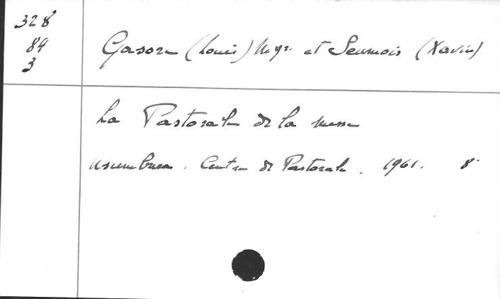 328
89
3
Gasore (Louis) Mgr. et Seumois (Xavier)
La Pastorale de la messe
Usumbura. Centre de Pastorale. 1961. 8°